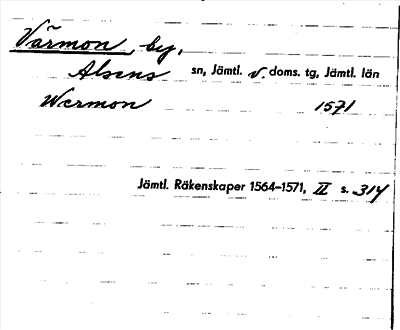 Värmon, by,
Alsens sn, Jämtl. v. doms. tg, Jämtl. län
Wermon 1571
Jämtl. Räkenskaper 1564–1571, II s. 314